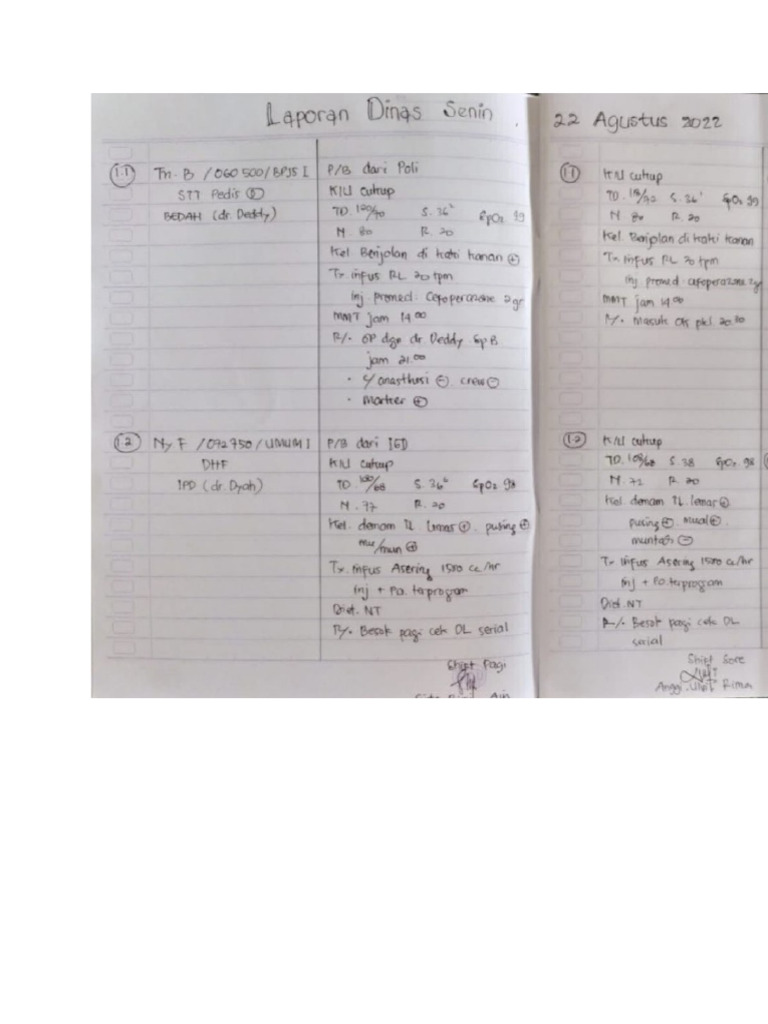 Laporan Dinas Senin
1.1 Tn. B / 060 500 / BPJS I
STT Pedis
BEDAH (dr. Deddy)
P/B dari Poli
K/U cukup
TD. 120/70 S. 36² SpO2 99
N. 80 R. 20
Kel Benjolan di kaki kanan +
Tx infus RL 20 tpm
Inj. premed: Cefoperazone 2 gr
MMT jam 14.00
R/. OP dgn dr. Deddy SpB
jam 21.00
• c/ anasthesi - crew -
• Marker +
1.2 Ny F / 092 750 / UMUM I
DHF
IPD (dr. Dyah)
P/B dari IGD
K/U cukup
TD. 100/68 S. 36² SpO2 98
N. 77 R. 20
Kel. demam TL lemas +. pusing +
mu/mun +
Tx. infus Asering 1500 cc/hr
Inj + P.o. terprogram
Diet. NT
R/. Besok pagi cek DL serial
Shift Pagi
22 Agustus 2022
1.1 K/U cukup
TD. /72 S. 36¹ SpO2 99
N 80 R. 20
Kel. Benjolan di kaki kanan
Tx. infus RL 20 tpm
Inj premed: cefoperazone 2gr
MMT jam 14.00
R/. Masuk Ok pkl. 20.30
1.2 K/U cukup
TD. 108/68 S. 38 SpO2 98
N. 72 R. 20
Kel. demam TL. lemas +
pusing + mual +.
muntah -
Tx infus Asering 1500 cc/hr
Inj + P.o. terprogram
Diet. NT
R/. Besok pagi cek DL
serial
Shift Sore
Anggi